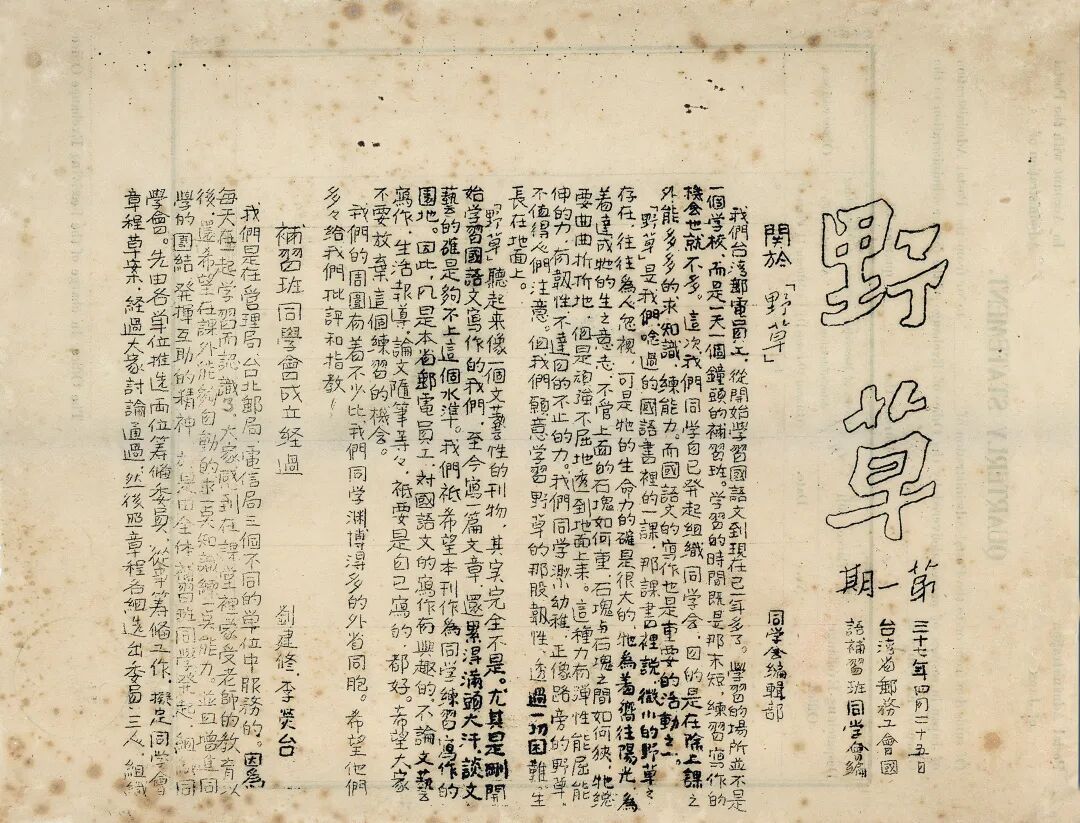 野草
第一期
三十七年四月二十五日
台湾省郵務工會國
語補習班同學會編
関於「野草」
同学会編輯部
我們台湾郵電員工,從開始學習國語文到現在已一年多了。學習的場所並不是
一個学校,而是一天一個鐘頭的補習班。学習的時間既是那末短,練習寫作的
機会也就不多。這次我們同学自己発起組織同学会,目的是在除上課之
外能多多的求知識,練能力。而國語文的寫作也是重要的活動之一。
「野草」是我們唸過的國語書裡的一課,那課書裡説,微小的野草々
存在,往往為人忽視,可是牠的生命力的確是很大的,牠為着嚮往陽光,為
着達成牠的生之意志,不管上面的石塊如何重,石塊与石塊之間如何狹,牠總
要曲曲折折地,但是頑強不屈地透到地面上來。這種力有彈性能屈能
伸的力,有韌性不達目的不止的力。我們同学渺小幼稚,正像路旁的野草,
不值得人們注意。但我們願意学習野草的那股韌性,透過一切困難,生
長在地面上。
「野草」聽起來像一個文藝性的刊物,其实完全不是。尤其是剛開
始学習國語文寫作的我們,至今寫一篇文章,還累得滿頭大汗,談文
藝的確是夠不上這個水準。我們祇希望本刊作為同学練習寫作的
園地。因此,凡是本省郵電員工,対國語文的寫作有興趣的,不論文藝
寫作,生活報導,論文隨筆等々,祇要是自己寫的都好。希望大家
不要放棄這個練習的機会。
我們的周圍有着不少比我們同学渊博得多的外省同胞。希望他們
多々給我們批評和指教!
補習班同學會成立経過
劉建修、李熒台
我們是在管理局台北郵局、電信局三個不同的單位中服務的。因為
每天在一起学習而認識了,大家感到在課堂裡家受老師的教育以
後,還希望在課外能夠自動的求吳知識練吳能力,並且增進同
學的團結,発揮互助的精神,於是由全体補習班同學発起組織同
學會。先由各單位推选兩位籌俻委員,從事籌俻工作,擬定同學會
章程草案,経過大家討論通過,然後照章程各組选出委員三人組織